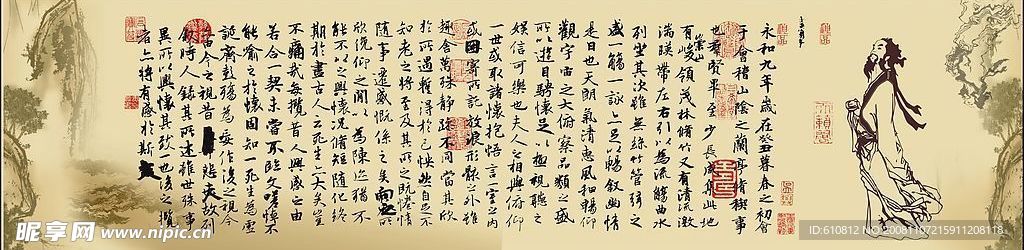 永和九年歲在癸丑暮春之初會
于會稽山陰之蘭亭脩稧事
也羣賢畢至少長咸集此地
有崇山峻領茂林脩竹又有清流激
湍暎帶左右引以為流觴曲水
列坐其次雖無絲竹管弦之
盛一觴一詠亦足以暢敘幽情
是日也天朗氣清惠風和暢仰
觀宇宙之大俯察品類之盛
所以遊目騁懷足以極視聽之
娛信可樂也夫人之相與俯仰
一世或取諸懷抱悟言一室之內
或因寄所託放浪形骸之外雖
趣舍萬殊靜躁不同當其欣
於所遇暫得於己快然自足不
知老之將至及其所之既惓情
隨事遷感慨係之矣向之所
欣俛仰之閒以為陳迹猶不
能不以之興懷況脩短隨化終
期於盡古人云死生亦大矣豈
不痛哉每攬昔人興感之由
若合一契未嘗不臨文嗟悼不
能喻之於懷固知一死生為虛
誕齊彭殤為妄作後之視今
亦由今之視昔悲夫故列
敘時人錄其所述雖世殊事
異所以興懷其致一也後之攬
者亦將有感於斯文
昵享网 www.nipic.cn
ID:610812 20081107215911208118